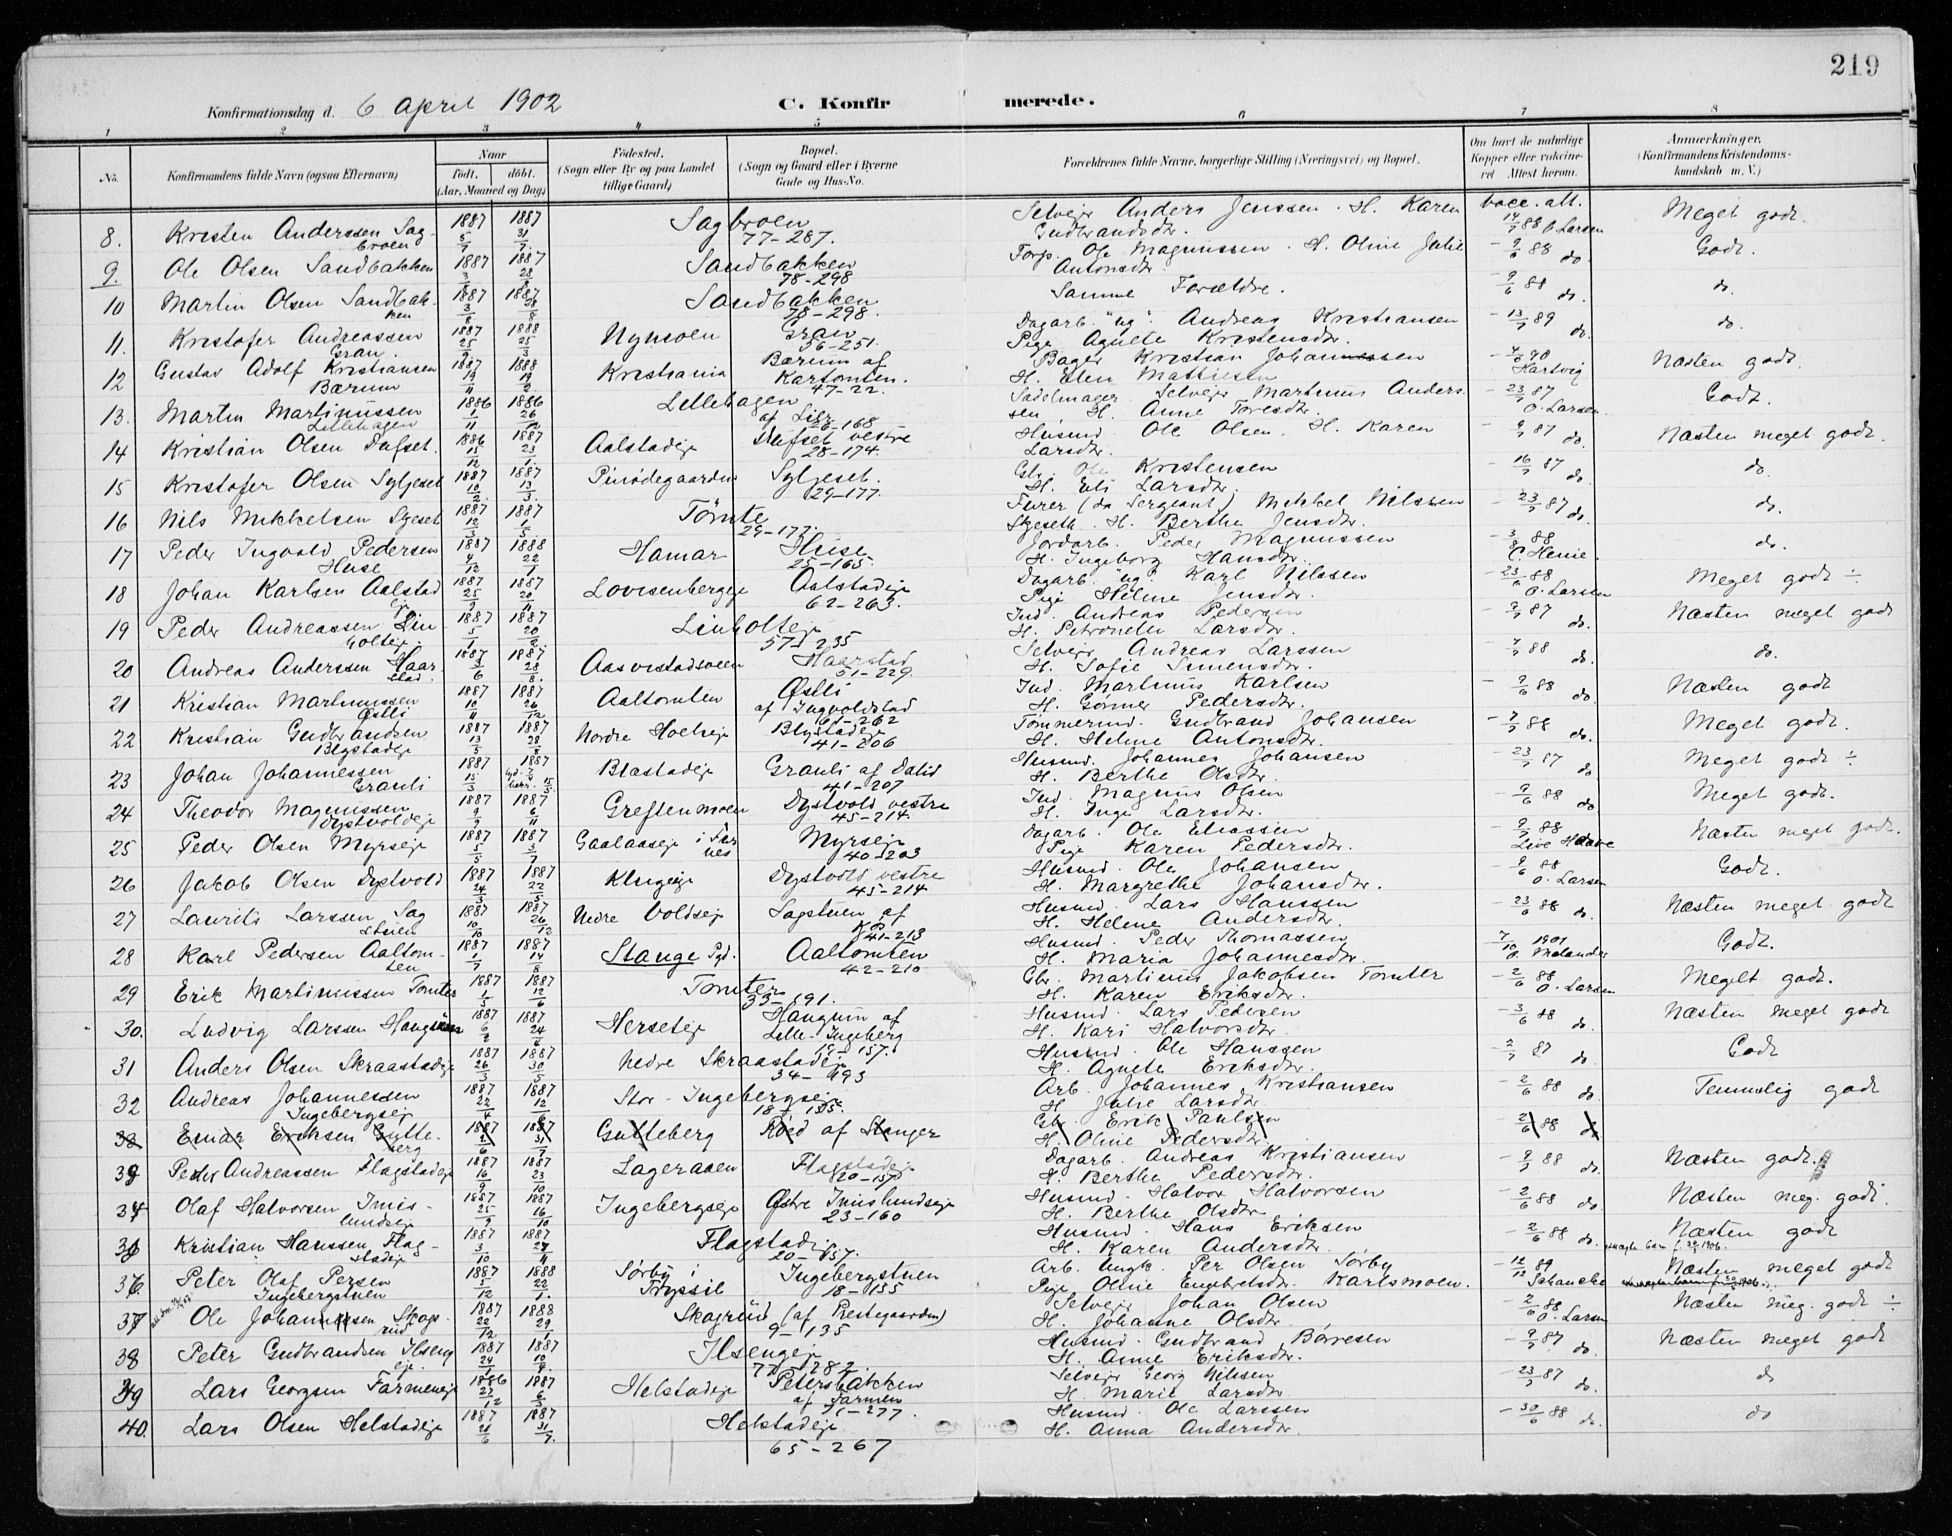 219
Konfirmationsdag d. 6 april 1902 C. Konfirmerede.
1 2 3 4 5 6 7 8
No. Konfirmandens fulde Navn (ogsaa Efternavn) Naar født. døbt. (Aar, Maaned og Dag) Fødested. (Sogn eller By og paa Landet tillige Gaard) Bopæl. (Sogn og Gaard eller i Byerne Gade og Hus-No. Forældrenes fulde Navne, borgerlige Stilling (Næringsvei) og Bopæl. Om havt de naturlige Kopper eller vakcineret Attest herom. Anmærkninger. (Konfirmandens Kristendomskundskab m. V.)
8. Kristen Anderssen Sagbroen 1887 5/7 1887 31/7 Sagbroen 77-287. Selvejer Anders Jenssen. H. Karen Gudbrandsdtr. vacc. att. 14/9 88 O. Larsen Meget godt.
9. Ole Olsen Sandbakken 1887 3/8 1887 28/8 Sandbakken 78-298 Forp. Ole Magnussen. H. Oline Julie Antonsdtr. - 9/6 88 do. Godt.
10 Martin Olsen Sandbakken 1887 3/8 1887 28/8 Sandbakken 78-298. Samme Forældre. - 9/6 88 do. do.
11. Kristofer Andreassen Gran. 1887 25/9 1888 25/3 Nymoen Gran 36-251. Dagarb. "ug" Andreas Kristiansen Pige Agnete Kristensdtr. - 13/7 89 do. do.
12 Gustav Adolf Kristiansen Bærum 1887 19/11 1888 19/2 Kristiania Bærum af Kartomten. 47-22. Bager Kristian Johannessen H. Elen Mattiesen 90 Hartvig Næsten godt.
13. Martin Martinussen Lillehagen 1886 1/11 1886 26/12 Lillehagen af Lier 28-168 Sadelmager Selvejer Martinus Anderssen H. Anne Toresdtr. - 23/7 87 O. Larsen. Godt.
14 Kristian Olsen Dufset. 1886 15/12 1887 23/1. Aalstadeje Dufset vestre 28-174. Husmd Ole Olsen. H. Karen Larsdtr. - 9/7 87 do. Næsten meget godt.
15 Kristofer Olsen Syljeset 1887 10/2. 1887 13/3. Pinsødegaarden Syljeset. 29-177. Gbr. Ole Kristensen H. Eli Larsdtr. - 16/7 87 do. do.
16 Nils Mikkelsen Sljeset 1887 12/3 1887 1/5 Tömte 29-177. Furer (da Sergeant) Mikkel Nilssen Skjeseth. H. Berthe Jensdtr. - 23/7 87 do. do.
17 Peder Ingvald Pedersen Huse 1887 4/12 1888 22/1 Hamar Huse 25-165. Jordarb. Peder Magnussen H. Ingeborg Hansdtr. - 3/8 88 C. Henie. do.
18 Johan Karlsen Aalstadeje 1887 25/9 1887 20/11 Lovisenbergeje Aalstadeje 62-263. Dagarb. "ug". Karl Nilssen Pige Helene Jensdtr. - 23/6 88 O. Larsen Meget godt ÷
19 Peder Andreassen Linholteje 1887 5/1 1887 20/2. Linholteje 57-235 Ind. Andreas Pedersen H. Petronelle Larsdtr. - 9/7 87 do. Næsten meget godt
20 Andreas Anderssen Haarstad. 1887 3/6 1887 28/8. Aasvestadsveen Haarstad 51-229. Selvejer Andreas Larssen H. Sofie Simensdtr. - 7/7 88 do. do.
21 Kristian Martinussen Østli 1887 10/11 1887 26/12 Aaltomten Østli af Ingvoldstad 61-262 Ind. Martinus Karlsen H. Gønner Pedersdtr. - 9/6 88 do. Næsten godt
22 Kristian Gudbrandsen Blystadeje 1887 13/5 1887 28/8 Nordre Hoelseje Blystadeje 41-206 Tømmermd. Gudbrand Johansen H. Helene Antonsdtr. - 7/7 88 do. Meget godt.
23 Johan Johannessen Granli 1887 15/3 1887 15/5 Blæstadeje Granli af Dalid 41-207 Husmd. Johannes Johansen H. Berthe Olsdtr. - 23/7 87 do Meget godt ÷
24 Theodor Magnussen Dystvoldeje 1887 9/9 1887 6/11 Greftenmoen Dystvold vestre 45-214. Ind. Magnus Olsen H. Inge Larsdtr. - 9/6 88 do Meget godt.
25 Peder Olsen Myrseje 1887 5/5 1887 3/7 Gaalaaseje i Furnes Myrseje 40-203 Dagarb. Ole Eliassen Pige Karen Pedersdtr. - 9/7 88 Live Haave Næsten meget godt.
26 Jakob Olsen Dystvold 1887 24/3 1887 22/5 Klugeeje Dystvold vestre 45-214 Husmd. Ole Johansen H. Margrethe Johansdtr. - 9/6 88 O. Larsen Godt.
27 Laurits Larssen Sagstuen 1887 10/10 1887 26/12 Nedre Voldseje Sagstuen af 41-213 Husmd. Lars Hanssen H. Helene Andersdtr. - 23/6 88 do. Næsten meget godt
28 Karl Pedersen Aaltomten 1887 1/7 1887 14/8 Stange Pgd. Aaltomten 42-210 Husmd. Peder Thomassen H. Maria Johannesdtr. 7/10 1901 O. Melander Godt.
29 Erik Martinussen Tomter 1887 1/5 1887 12/6 Tomter 33-191. Gbr. Martinus Jakobsen Tomter H. Karen Eriksdtr. - 2/6 88 O. Larsen Meget godt.
30. Ludvig Larssen Haugum 1887 6/2 1887 24/4 Herseteje Haugum af Lille-Ingeberg 19-157. Husmd Lars Pedersen H. Kari Halvorsdtr. - 3/6 88 do. Næsten meget godt
31 Anders Olsen Skraastadeje 1887 26/3 1887 30/5 Nedre Skraastadeje 34-193 Husmd. Ole Hanssen H. Agnete Eriksdtr. - 2/7 87 do. Godt
32 Andreas Johannessen Ingebergseje 1887 22/4 1887 12/6 Stor-Ingebergseje 18-155. Arb. Johannes Kristiansen H Julie Larsdtr. - 2/6 88 do. Temmelig godt
33 Einar Eriksen Gutteberg 1887 1887 31/7 Gutteberg Roed af Stanger Gbr. Erik Paulsen H. Oline Pedersdtr. - 2/6 88 do
33 Peder Andreassen Flagstadeje 1887 16/9 1887 23/10 Lageraaen Flagstadeje 20-157 Dagarb. Andreas Kristiansen H. Berthe Pedersdtr. - 9/7 88 do. Næsten godt.
34 Olaf Halvorsen Imislundseje 1887 25/9 1887 16/10 Ingebergseje Østre Imislundseje 23-160 Husmd. Halvor Halvorsen H. Berthe Olsdtr. - 2/6 88 do Næsten meg. godt.
35 Kristian Hanssen Flagstadeje 1887 3/10 1887 27/11 Flagstadeje 20-157. Husmd. Hans Eriksen H. Karen Andersdtr. - 2/6 88 do. Næsten godt
36 Peter Olaf Persen Ingebergstuen 1887 5/12 1888 22/1. Sörby i Trysil Ingebergstuen 18-155 Arb. Ungk. Per Olsen Sörby Pige Oline Engebretsdtr. Karlsmoen. - 12/12 89 Schancke Næsten meget godt
37 Ole Johannessen Skogsrud 1887 22/12 1888 29/1 Skogrud (af Prestegaarden) 9-135 Selvejer Johan Olsen H. Johanne Olsdtr. - 2/6 88 O. Larsen Næsten meg. godt ÷
38 Peter Gudbrandsen Ilsengeje. 1887 24/1 1887 10/4. Ilsengeje 77-282. Husmd. Gudbrand Børresen H. Anne Eriksdtr. - 9/7 87 do. Næsten meget godt
39 Lars Georgsen Farmeneje 1886 27/12 1887 6/3 Helstadeje Petersbakken af Farmen 71-277. Selvejer Georg Nilssen H. Marie Larsdtr. - 23/7 87 do. do
40. Lars Olsen Helstadeje 1887 28/6 1887 31/7. Helstadeje 65-267 Husmd. Ole Larssen H. Anna Andersdtr. - 30/6 88 do. do